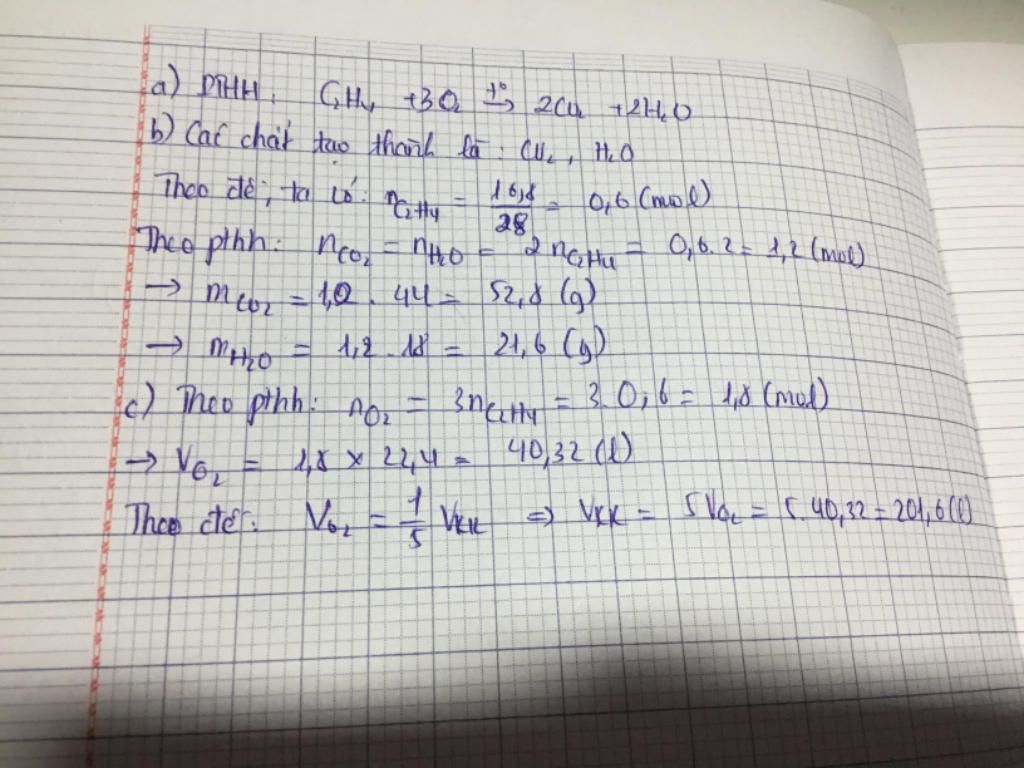 a) PTHH: C₂H₄ + 3O₂ t°→ 2CO₂ + 2H₂O
b) Các chất tạo thành là: CO₂, H₂O
Theo đề, ta có: nC₂H₄ = 16,8/28 = 0,6 (mol)
Theo pthh: nCO₂ = nH₂O = 2nC₂H₄ = 0,6.2 = 1,2 (mol)
→ mCO₂ = 1,2 . 44 = 52,8 (g)
→ mH₂O = 1,2 . 18 = 21,6 (g)
c) Theo pthh: nO₂ = 3nC₂H₄ = 3.0,6 = 1,8 (mol)
→ VO₂ = 1,8 × 22,4 = 40,32 (l)
Theo đề: VO₂ = 1/5 VKK ⇒ VKK = 5VO₂ = 5.40,32 = 201,6 (l)